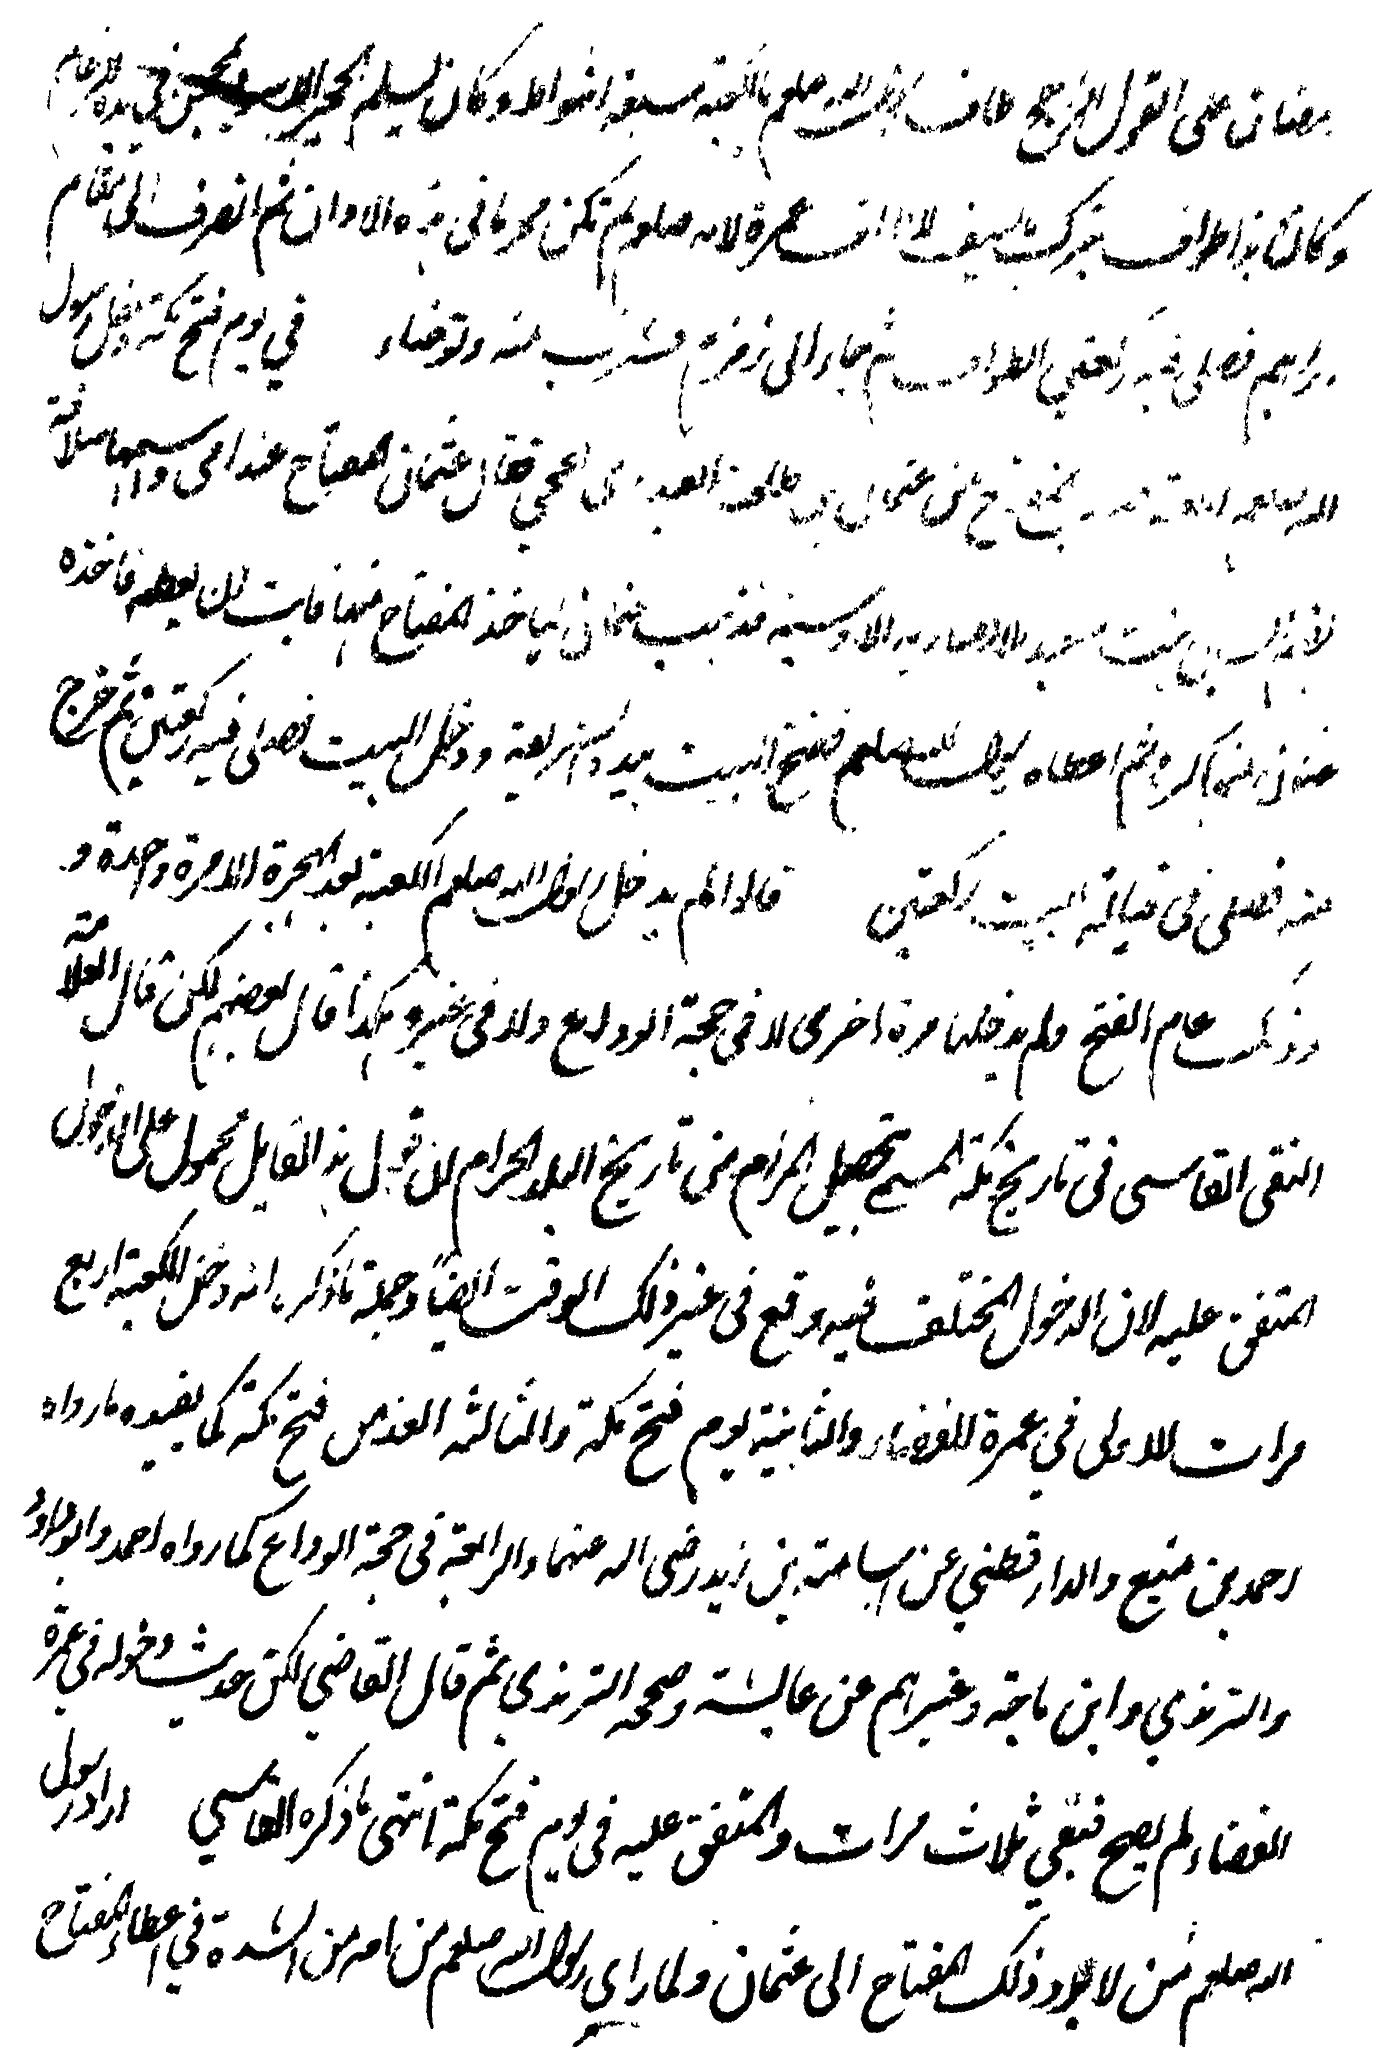 رمضان على القول الارجح طاف رسول الله صلعم بالكعبة سبعة اشواط وكان يستلم الحجر الاسود بمحجن في يده الزحام
وكان هذا طواف عمرة لانه صلعم لم يكن محرما في هذه الاوان ثم انصرف الى مقام
براهيم فصلى فيه ركعتي الطواف ثم جاء الى زمزم فشرب منه وتوضاء في يوم فتح مكة دخل رسول
الله صلعم عثمان بن طلحة العبدري الحجبي فقال عثمان المفتاح عند امي واسمها سلافة
بنت سعيد الانصارية الاوسية فذهب عثمان لياخذ المفتاح منها فابت ان يعطيه فاخذه
عثمان منها كرها ثم اعطاه رسول الله صلعم ففتح البيت بيده الشريفة ودخل البيت فصلى فيه ركعتين ثم خرج
منه فصلى في قبالة البيت ركعتين قالوا لم يدخل رسول الله صلعم الكعبة بعد الهجرة الا مرة واحدة و
وذلك عام الفتح ولم يدخلها مرة اخرى لا في حجة الوداع ولا في غيره هكذا قال بعضهم لكن قال العلامة
التقي الفاسي في تاريخ مكة المسمى تحصيل المرام من تاريخ البلد الحرام ان قول هذا القايل محمول على الدخول
المتفق عليه لان الدخول المختلف فيه وقع في غير ذلك الوقت ايضا وجملة ما ذكر انه دخل الكعبة اربع
مرات الاولى في عمرة القضاء والثانية يوم فتح مكة والثالثة الغد من فتح مكة كما يفيده ما رواه
احمد بن منيع والدارقطني عن اسامة بن زيد رضي الله عنهما والرابعة في حجة الوداع كما رواه احمد وابو داود
والترمذي وابن ماجة وغيرهم عن عايشة وصححه الترمذي ثم قال القاضي لكن حديث دخوله في عمرة
القضاء لم يصح فبقي ثلاث مرات والمتفق عليه في يوم فتح مكة انتهى ما ذكره الفاسي اراد رسول
الله صلعم ان لا يرد ذلك المفتاح الى عثمان ولما راي رسول الله صلعم من امه من الشدة في اعطاء المفتاح